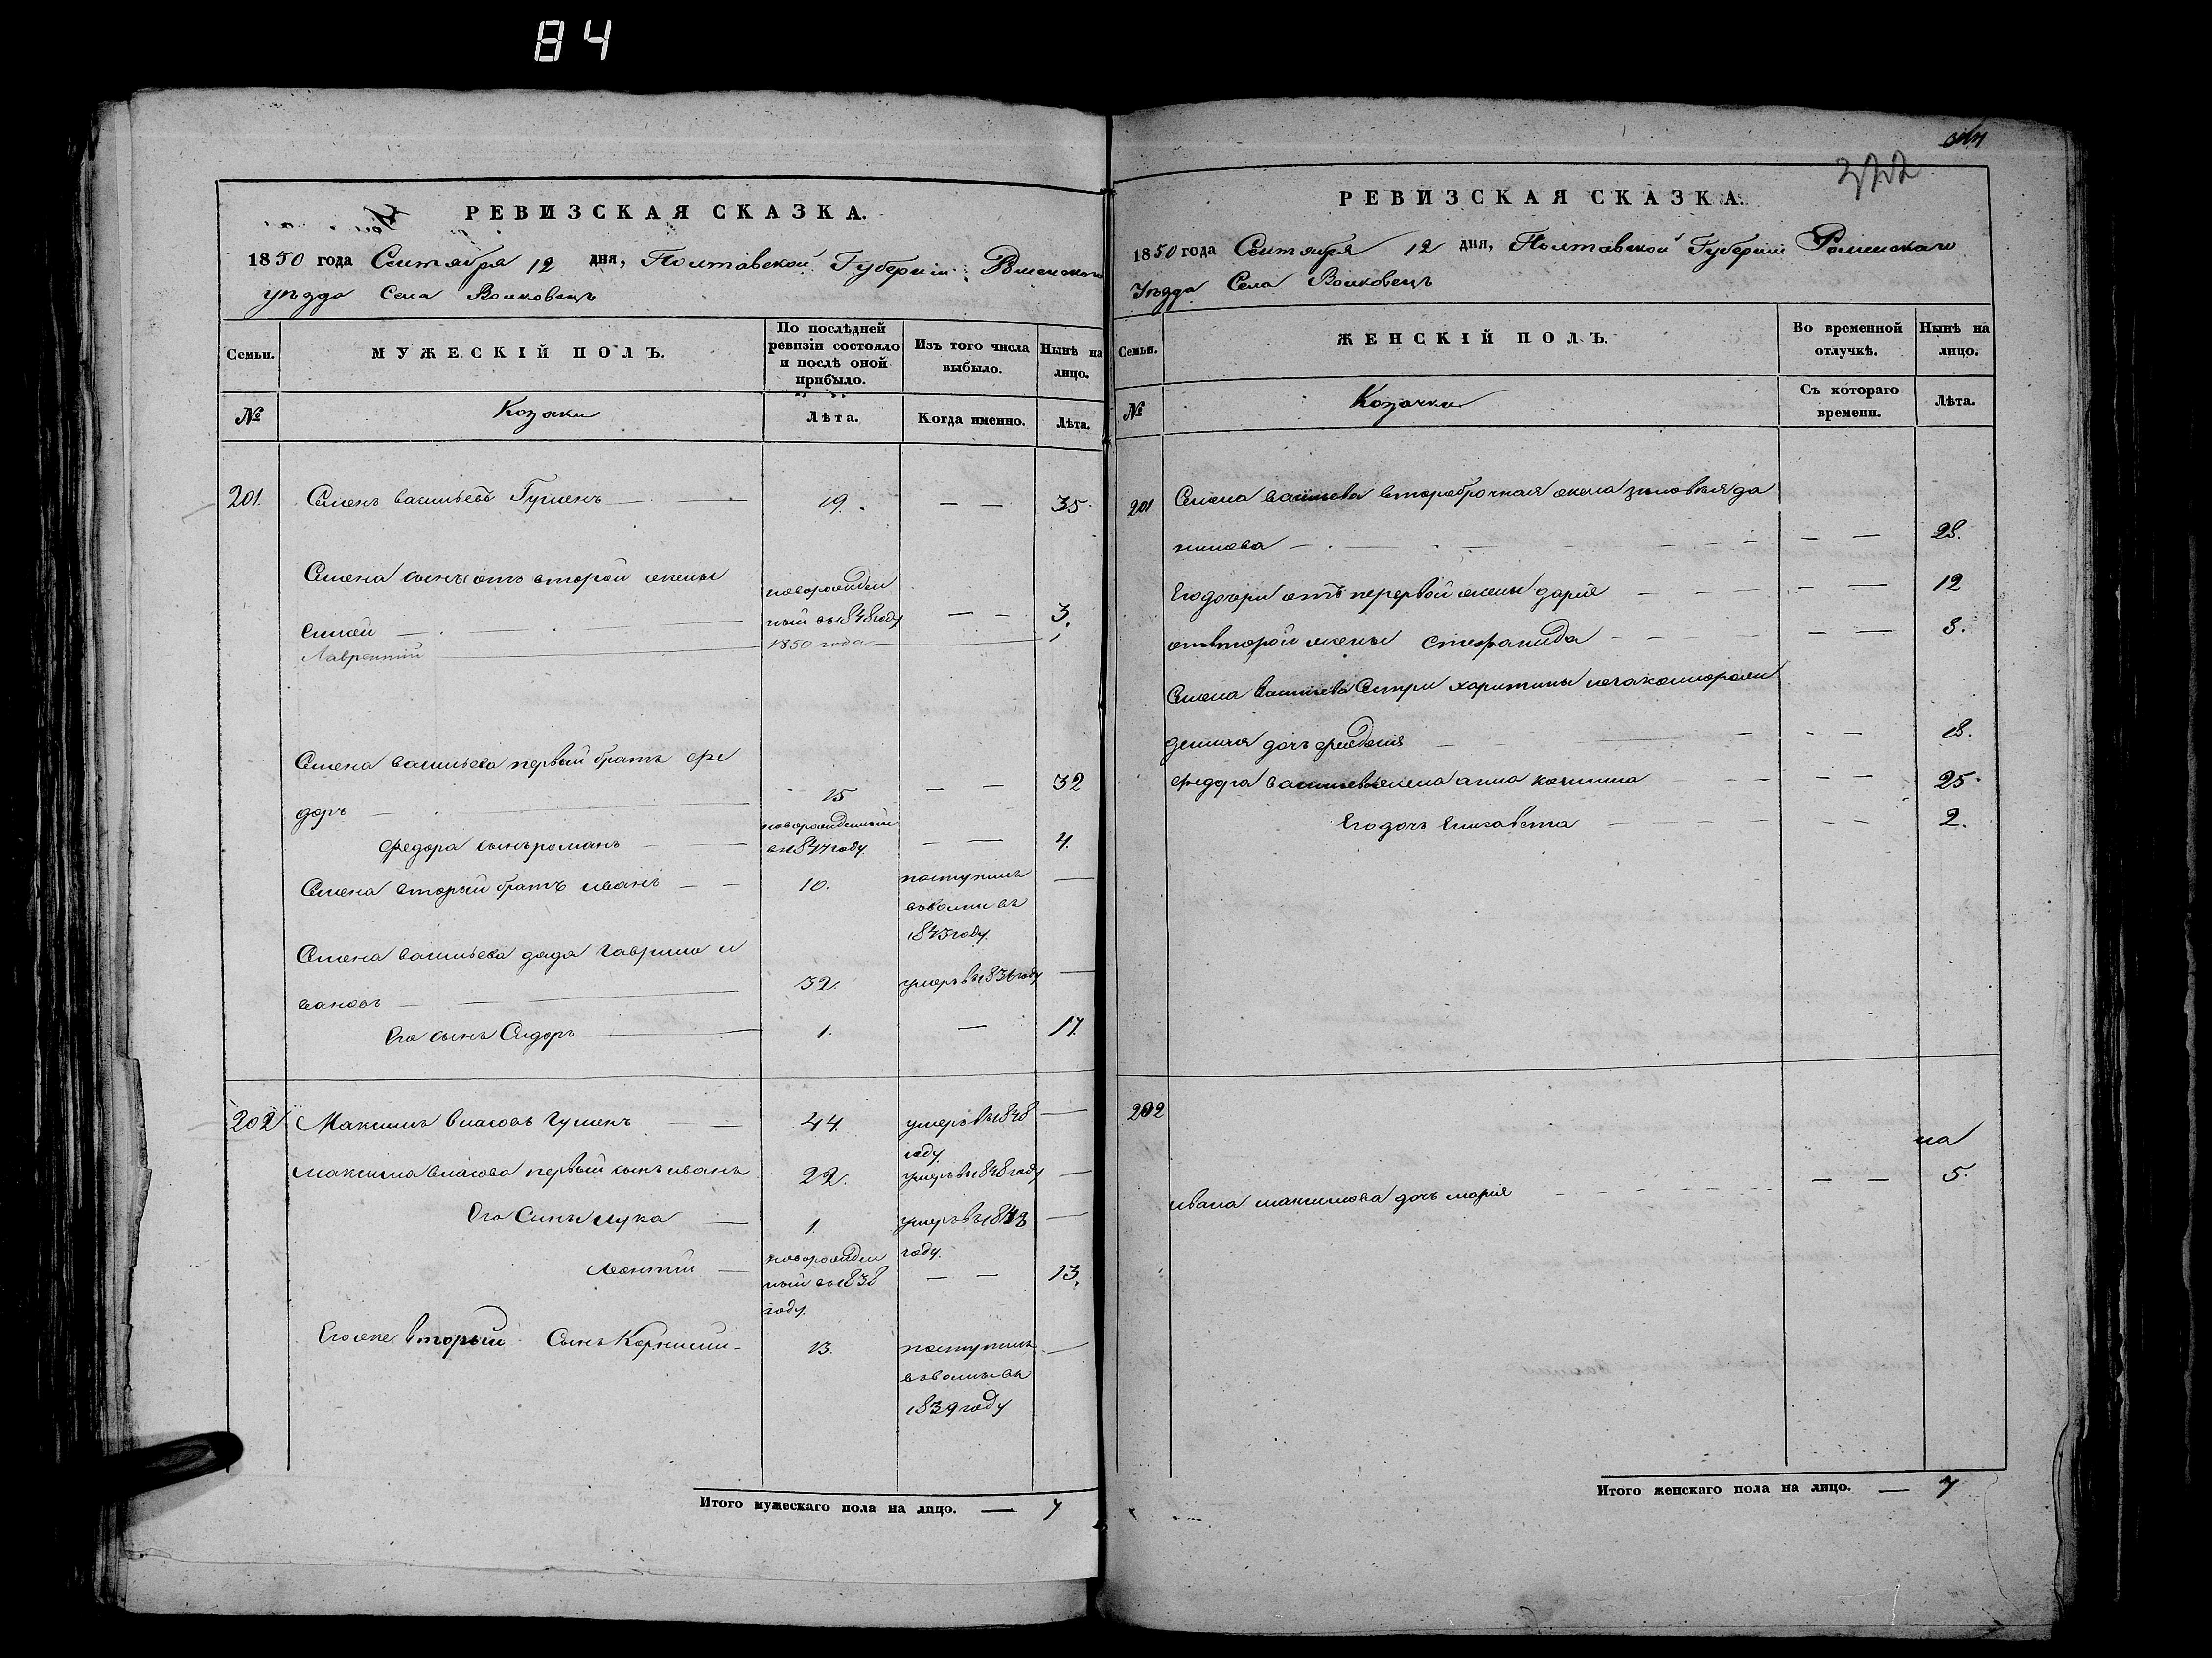 84
РЕВИЗСКАЯ СКАЗКА.
1850 года Сентября 12 дня, Полтавской Губернии Роменского
уезда Села Волковец
Семьи.
МУЖЕСКІЙ ПОЛЪ.
По послѣдней ревизіи состояло и послѣ оной прибыло.
Изъ того числа выбыло.
Нынѣ на лицо.
№
Козаки
Лѣта.
Когда именно.
Лѣта.
201. Семенъ васильевъ Гуменъ 19. — — 35
Семена сынъ отъ второй жены новорожден
ный въ 1848 году — — 3.
Лаврентий 1850 года
Семена васильева первый братъ фе
доръ 15 — — 32
Федора сынъ романъ новорожденный въ 1847 году — — 4.
Семена вторый братъ иванъ 10. поступилъ
въ
1845 году.
Семена васильева дядя гаврило и
вановъ 32. умеръ въ 1836 году —
Его сынъ Сидоръ 1. — 17.
202 Максимъ власовъ гуменъ 44. умеръ въ 1848 —
году.
максима власова первый сынъ иванъ 22. умеръ въ 1848 году —
Его Сынъ лука 1. умеръ въ 1843 —
году.
леонтий новорожден
ный въ 1838 — — 13.
году.
Его же вторый Сынъ Корнилий 13. поступилъ —
въ
1839 году
Итого мужескаго пола на лицо. — 7
322
РЕВИЗСКАЯ СКАЗКА.
1850 года Сентября 12 дня, Полтавской Губернии Роменскаго
Уѣзда Села Волковецъ
Семьи.
ЖЕНСКІЙ ПОЛЪ.
Во временной отлучкѣ.
Нынѣ на лицо.
№
Козачки
Съ котораго времени.
Лѣта.
201 Семена васильева второбрачная жена зиновия да
нилова — — 28.
Его дочери отъ первой жены дария — — 12
отвторой жены стефанида — — 8.
Семена васильева Сестри харитины
дочь феодосия — — 18.
федора васильева жена анна — — 25.
Его дочь Елисавета — — 2.
202
на
ивана максимова дочь мария — — 5.
Итого женскаго пола на лицо. — 7